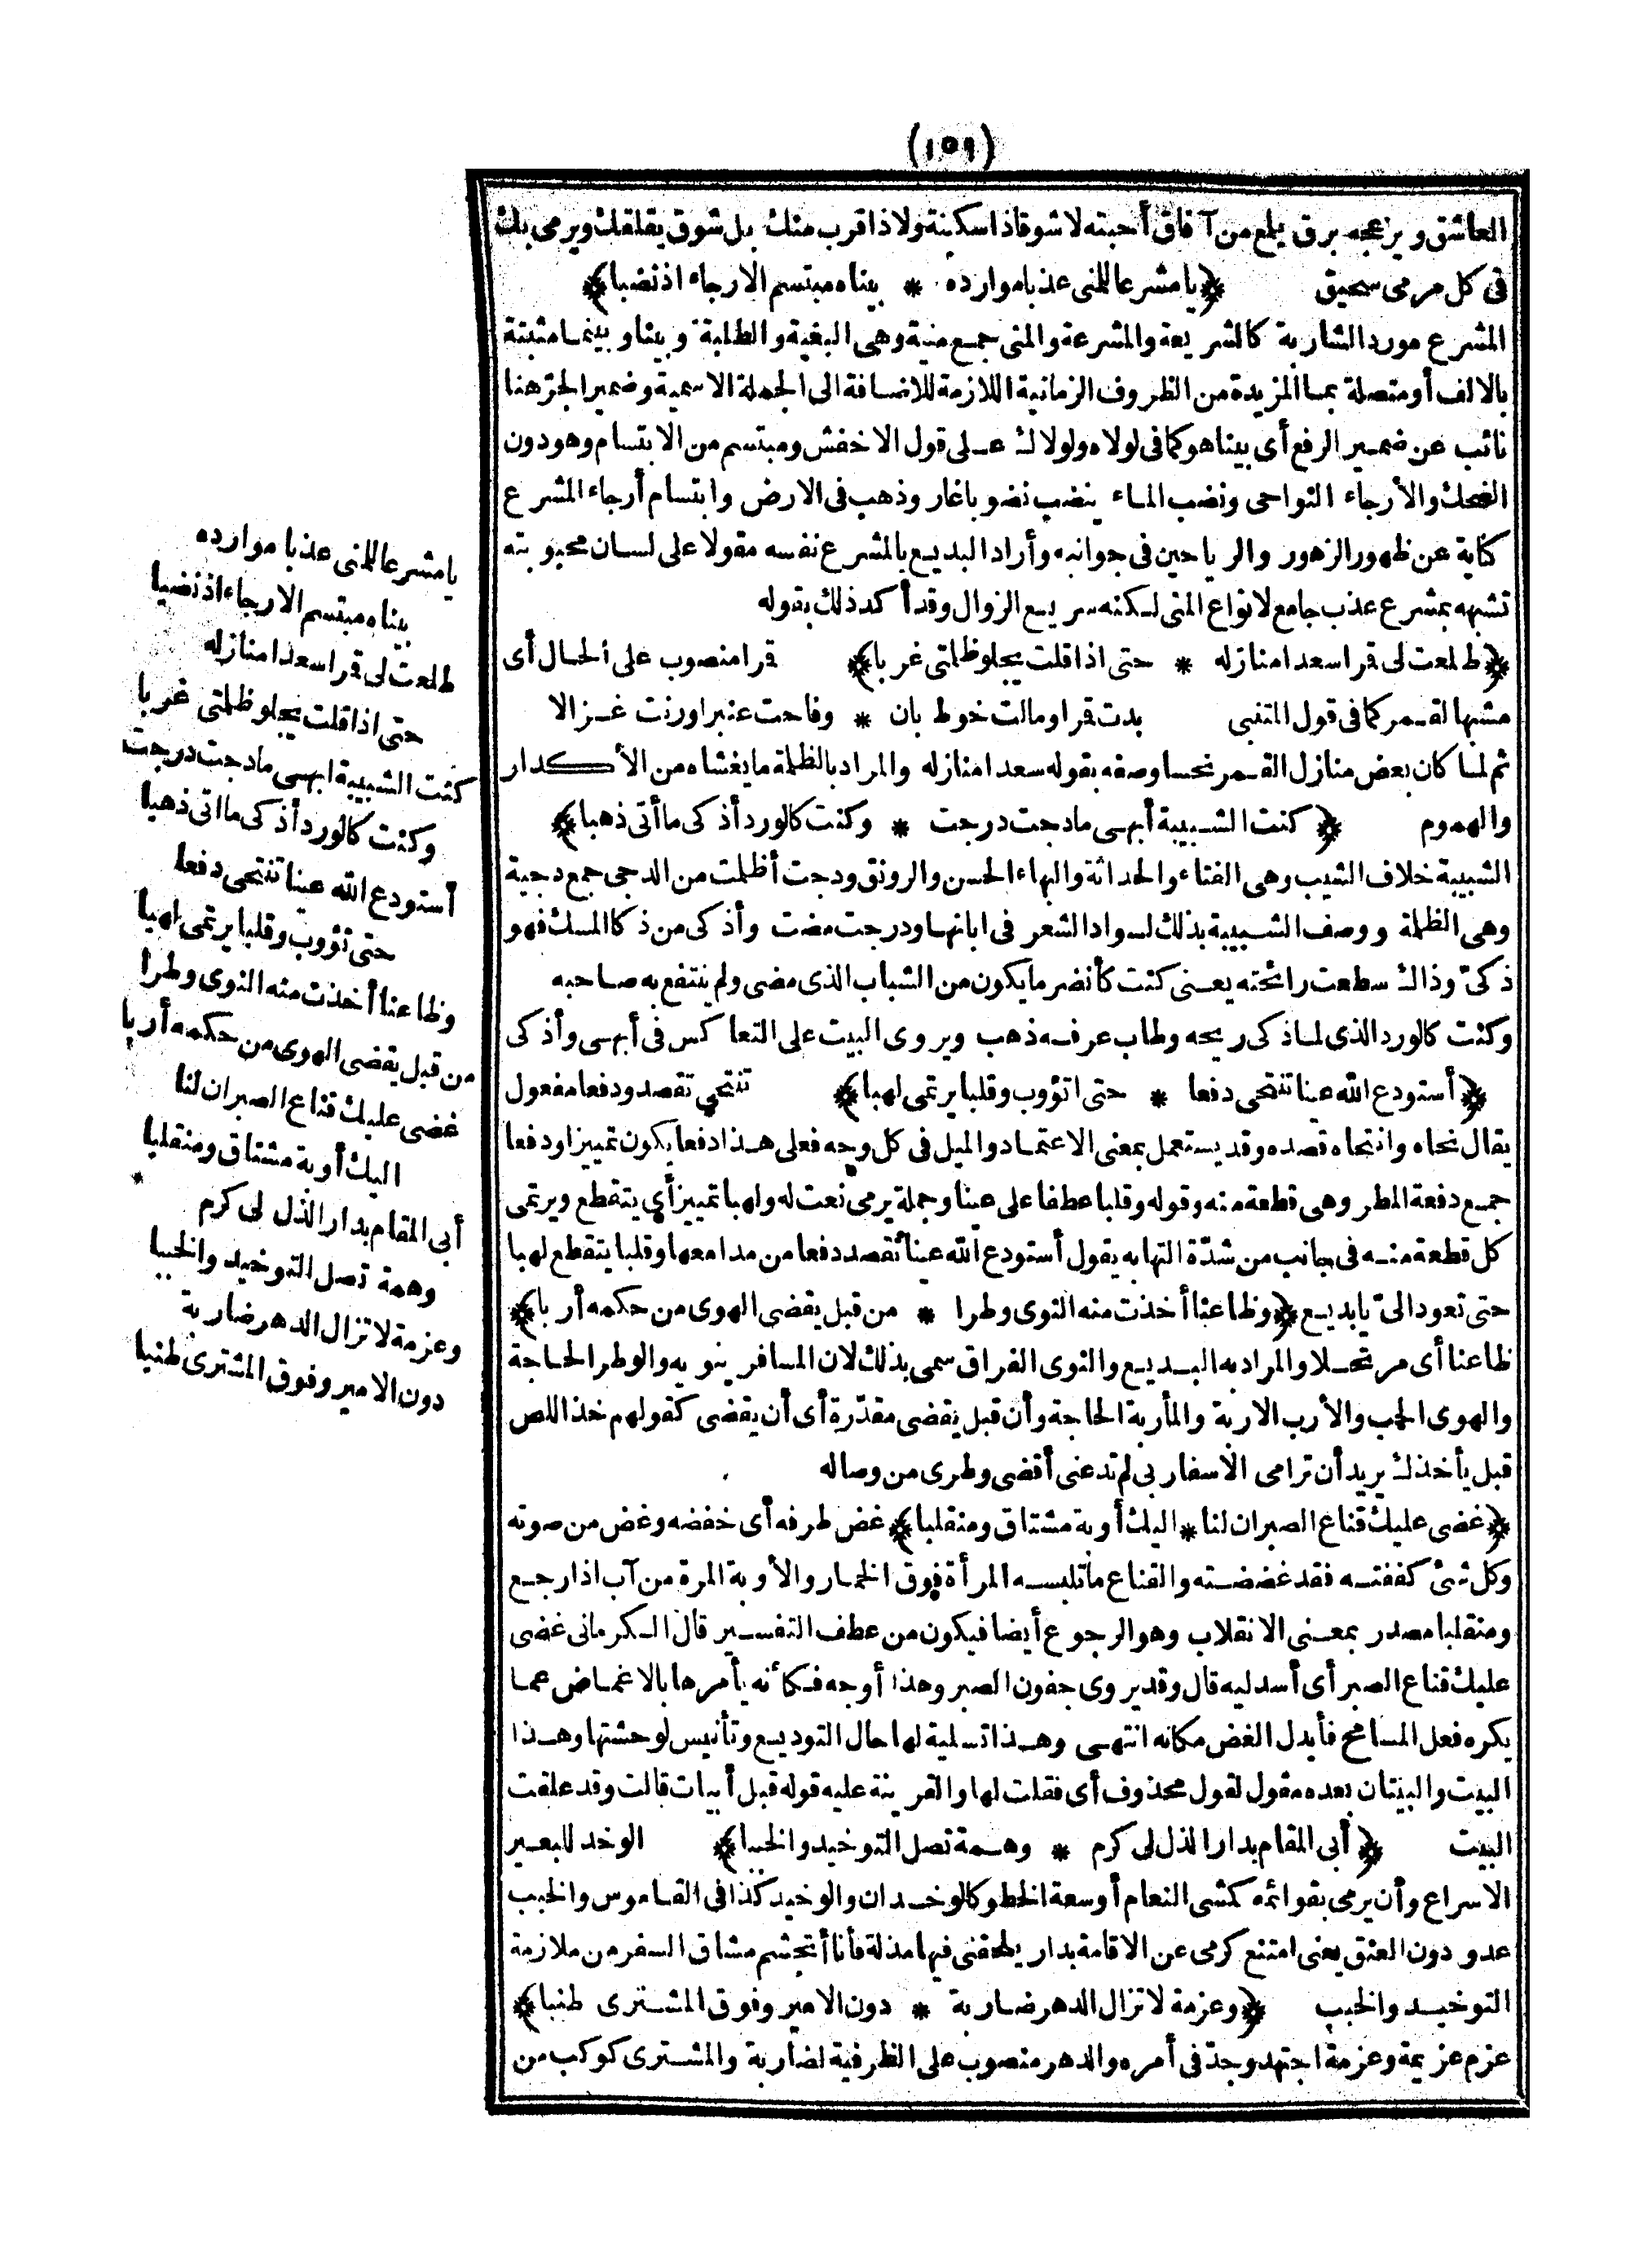 (١٥٩)
العاشق ويزعجه برق يلمع من آفاق أحبته لا شوقا ذا سكينة ولا ذا قرب منك بل شوق يقلقك ويرمى بك
فى كل مرمى سحيق ﴿يا مشرعا للمنى عذبا موارده * بيناه مبتسم الارجاء اذ نضبا﴾
المشرع مورد الشاربة كالشريعة والمشرعة والمنى جمع منية وهى البغية والطلبة وبينا وبينما مثبتة
بالالف أو متصلة بما المزيدة من الظروف الزمانية اللازمة للاضافة الى الجملة الاسمية وضمير الجرّ هنا
نائب عن ضمير الرفع أى بيناهو كما فى لولاه ولولاك على قول الاخفش ومبتسم من الابتسام وهو دون
الضحك والأرجاء النواحى ونضب الماء ينضب نضوبا غار وذهب فى الارض وابتسام أرجاء المشرع
كناية عن ظهور الزهور والرياحين فى جوانبه وأراد البديع بالمشرع نفسه مقولا على لسان محبوبته
تشبهه بمشرع عذب جامع لانواع المنى لكنه سريع الزوال وقد أكد ذلك بقوله
﴿طلعت لى قرا سعدا منازله * حتى اذا قلت يجلو ظلمتى غربا﴾ قرا منصوب على الحال أى
مشبها القمر كما فى قول المتنبى بدت قرا ومالت خوط بان * وفاحت عنبرا ورنت غزالا
ثم لما كان بعض منازل القمر نحسا وصفه بقوله سعدا منازله والمراد بالظلمة ما يغشاه من الأكدار
والهموم ﴿كنت الشبيبة أبهى ما دجت درجت * وكنت كالورد أذكى ما أتى ذهبا﴾
الشبيبة خلاف الشيب وهى الفتاء والحداثة والبهاء الحسن والرونق ودجت أظلمت من الدجى جمع دجية
وهى الظلمة ووصف الشبيبة بذلك لسواد الشعر فى ابانها ودرجت مضت وأذكى من ذكا المسك فهو
ذكىّ وذاك سطعت رائحته يعنى كنت كأنضر ما يكون من الشباب الذى مضى ولم ينتفع به صاحبه
وكنت كالورد الذى لما ذكى ريحه وطاب عرفه ذهب ويروى البيت على التعاكس فى أبهى وأذكى
﴿أستودع الله عينا تنتحى دفعا * حتى اتؤوب وقلبا يرتمى لهبا﴾ تنتحي تقصد ودفعا مفعول
يقال نحاه وانتحاه قصده وقد يستعمل بمعنى الاعتماد والميل فى كل وجه فعلى هذا دفعا يكون تمييزا ودفعا
جمع دفعة المطر وهى قطعة منه وقوله وقلبا عطفا على عينا وجملة يرمى نعت له ولهبا تمييزأي يتقطع ويرتمى
كل قطعة منه فى جانب من شدّة التهابه يقول أستودع الله عينا تقصد دفعا من مدامعها وقلبا يتقطع لهبا
حتى تعود الىّ يا بديع ﴿وظاعنا أخذت منه النوى وطرا * من قبل يقضى الهوى من حكمه أربا﴾
ظاعنا أى مرتحلا والمراد به البديع والنوى الفراق سمى بذلك لان المسافر ينويه والوطر الحاجة
والهوى الحب والأرب الاربة والمأربة الحاجة وأن قبل يقضى مقدّرة أى أن يقضى كقولهم خذ اللص
قبل يأخذك يريد أن ترامى الاسفار بى لم تدعنى أقضى وطرى من وصاله
﴿غضى عليك قناع الصبر ان لنا * اليك أوبة مشتاق ومنقلبا﴾ غض طرفه أى خفضه وغض من صوته
وكل شئ كففته فقد غضضته والقناع ما تلبسه المرأة فوق الخمار والأوبة المرة من آب اذا رجع
ومنقلبا مصدر بمعنى الانقلاب وهو الرجوع أيضا فيكون من عطف التفسير قال الكرمانى غضى
عليك قناع الصبر أى أسدليه قال وقد يروى جفون الصبر وهذا أوجه فكأنه يأمرها بالاغماض عما
يكره فعل المسامح فأبدل الغض مكانه انتهى وهذا تسلية لها حال التوديع وتأنيس لوحشتها وهذا
البيت والبيتان بعده مقول لقول محذوف أى فقلت لها والقرينة عليه قوله قبل أبيات قالت وقد علقت
البيت ﴿أبى المقام بدار الذل لى كرم * وهمة تصل التوخيد والخببا﴾ الوخد للبعير
الاسراع وأن يرمى بقوائمه كمشى النعام أوسعة الخطو كالوخدان والوخيد كذا فى القاموس والخبب
عدو دون العنق يعنى امتنع كرمى عن الاقامة بدار يلحقنى فيها مذلة فأنا أتجشم مشاق السفر من ملازمة
التوخيد والخبب ﴿وعزمة لا تزال الدهر ضاربة * دون الامير وفوق المشترى طنبا﴾
عزم عزيمة وعزمة اجتهد وجدّ فى أمره والدهر منصوب على الظرفية لضاربة والمشترى كوكب من
يا مشرعا للمنى عذبا موارده
بيناه مبتسم الارجاء اذ نضبا
طلعت لى قرا سعدا منازله
حتى اذا قلت يجلو ظلمتى غربا
كنت الشبيبة ابهى ما دجت درجت
وكنت كالورد أذكى ما اتى ذهبا
أستودع الله عينا تنتحى دفعا
حتى تؤوب وقلبا يرتمى لهبا
وظاعنا أخذت منه النوى وطرا
من قبل يقضى الهوى من حكمه أربا
غضى عليك قناع الصبر ان لنا
اليك أوبة مشتاق ومنقلبا
أبى المقام بدار الذل لى كرم
وهمة تصل التوخيد والخببا
وعزمة لا تزال الدهر ضاربة
دون الامير وفوق المشترى طنبا